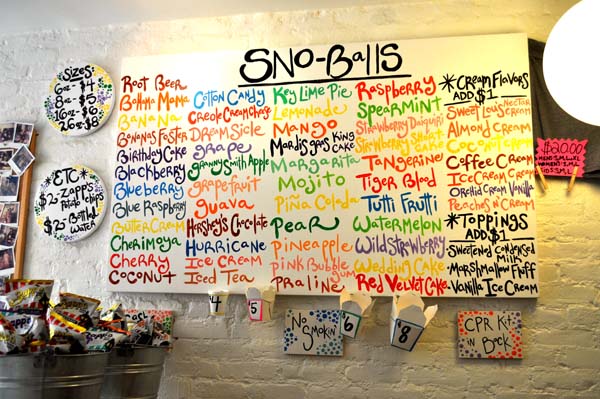 SNO-BALLS
SIZES
6oz - $4
8oz - $5
16oz - $6
26oz - $8
ETC
$2 - ZAPP'S
POTATO CHIPS
$2 - BOTTLED
WATER
ROOT BEER
BAHAMA MAMA
BANANA
BANANAS FOSTER
BIRTHDAY CAKE
BLACKBERRY
BLUEBERRY
BLUE RASPBERRY
BUTTERCREAM
CHERIMOYA
CHERRY
COCONUT
COTTON CANDY
CREOLE CREAM CHEESE
DREAMSICLE
GRAPE
GRANNY SMITH APPLE
GRAPEFRUIT
GUAVA
HERSHEY'S CHOCOLATE
HURRICANE
ICE CREAM
ICED TEA
KEY LIME PIE
LEMONADE
MANGO
MARDIS GRAS KING
CAKE
MARGARITA
MOJITO
PIÑA COLADA
PEAR
PINEAPPLE
PINK BUBBLE
GUM
PRALINE
RASPBERRY
SPEARMINT
STRAWBERRY DAIQUIRI
STRAWBERRY SHORTCAKE
TANGERINE
TIGER BLOOD
TUTTI FRUTTI
WATERMELON
WILD STRAWBERRY
WEDDING CAKE
RED VELVET CAKE
*CREAM FLAVORS
ADD $1
NECTAR
SWEET LOUS CREAM
ALMOND CREAM
COCONUT CREAM
COFFEE CREAM
ICE CREAM CREAM
ORCHID CREAM VANILLA
PEACHES N' CREAM
*TOPPINGS
ADD $1
- SWEETENED CONDENSED
MILK
- MARSHMALLOW FLUFF
- VANILLA ICE CREAM
$20.00
4
5
6
8
NO
SMOKIN'
CPR KIT
IN BACK